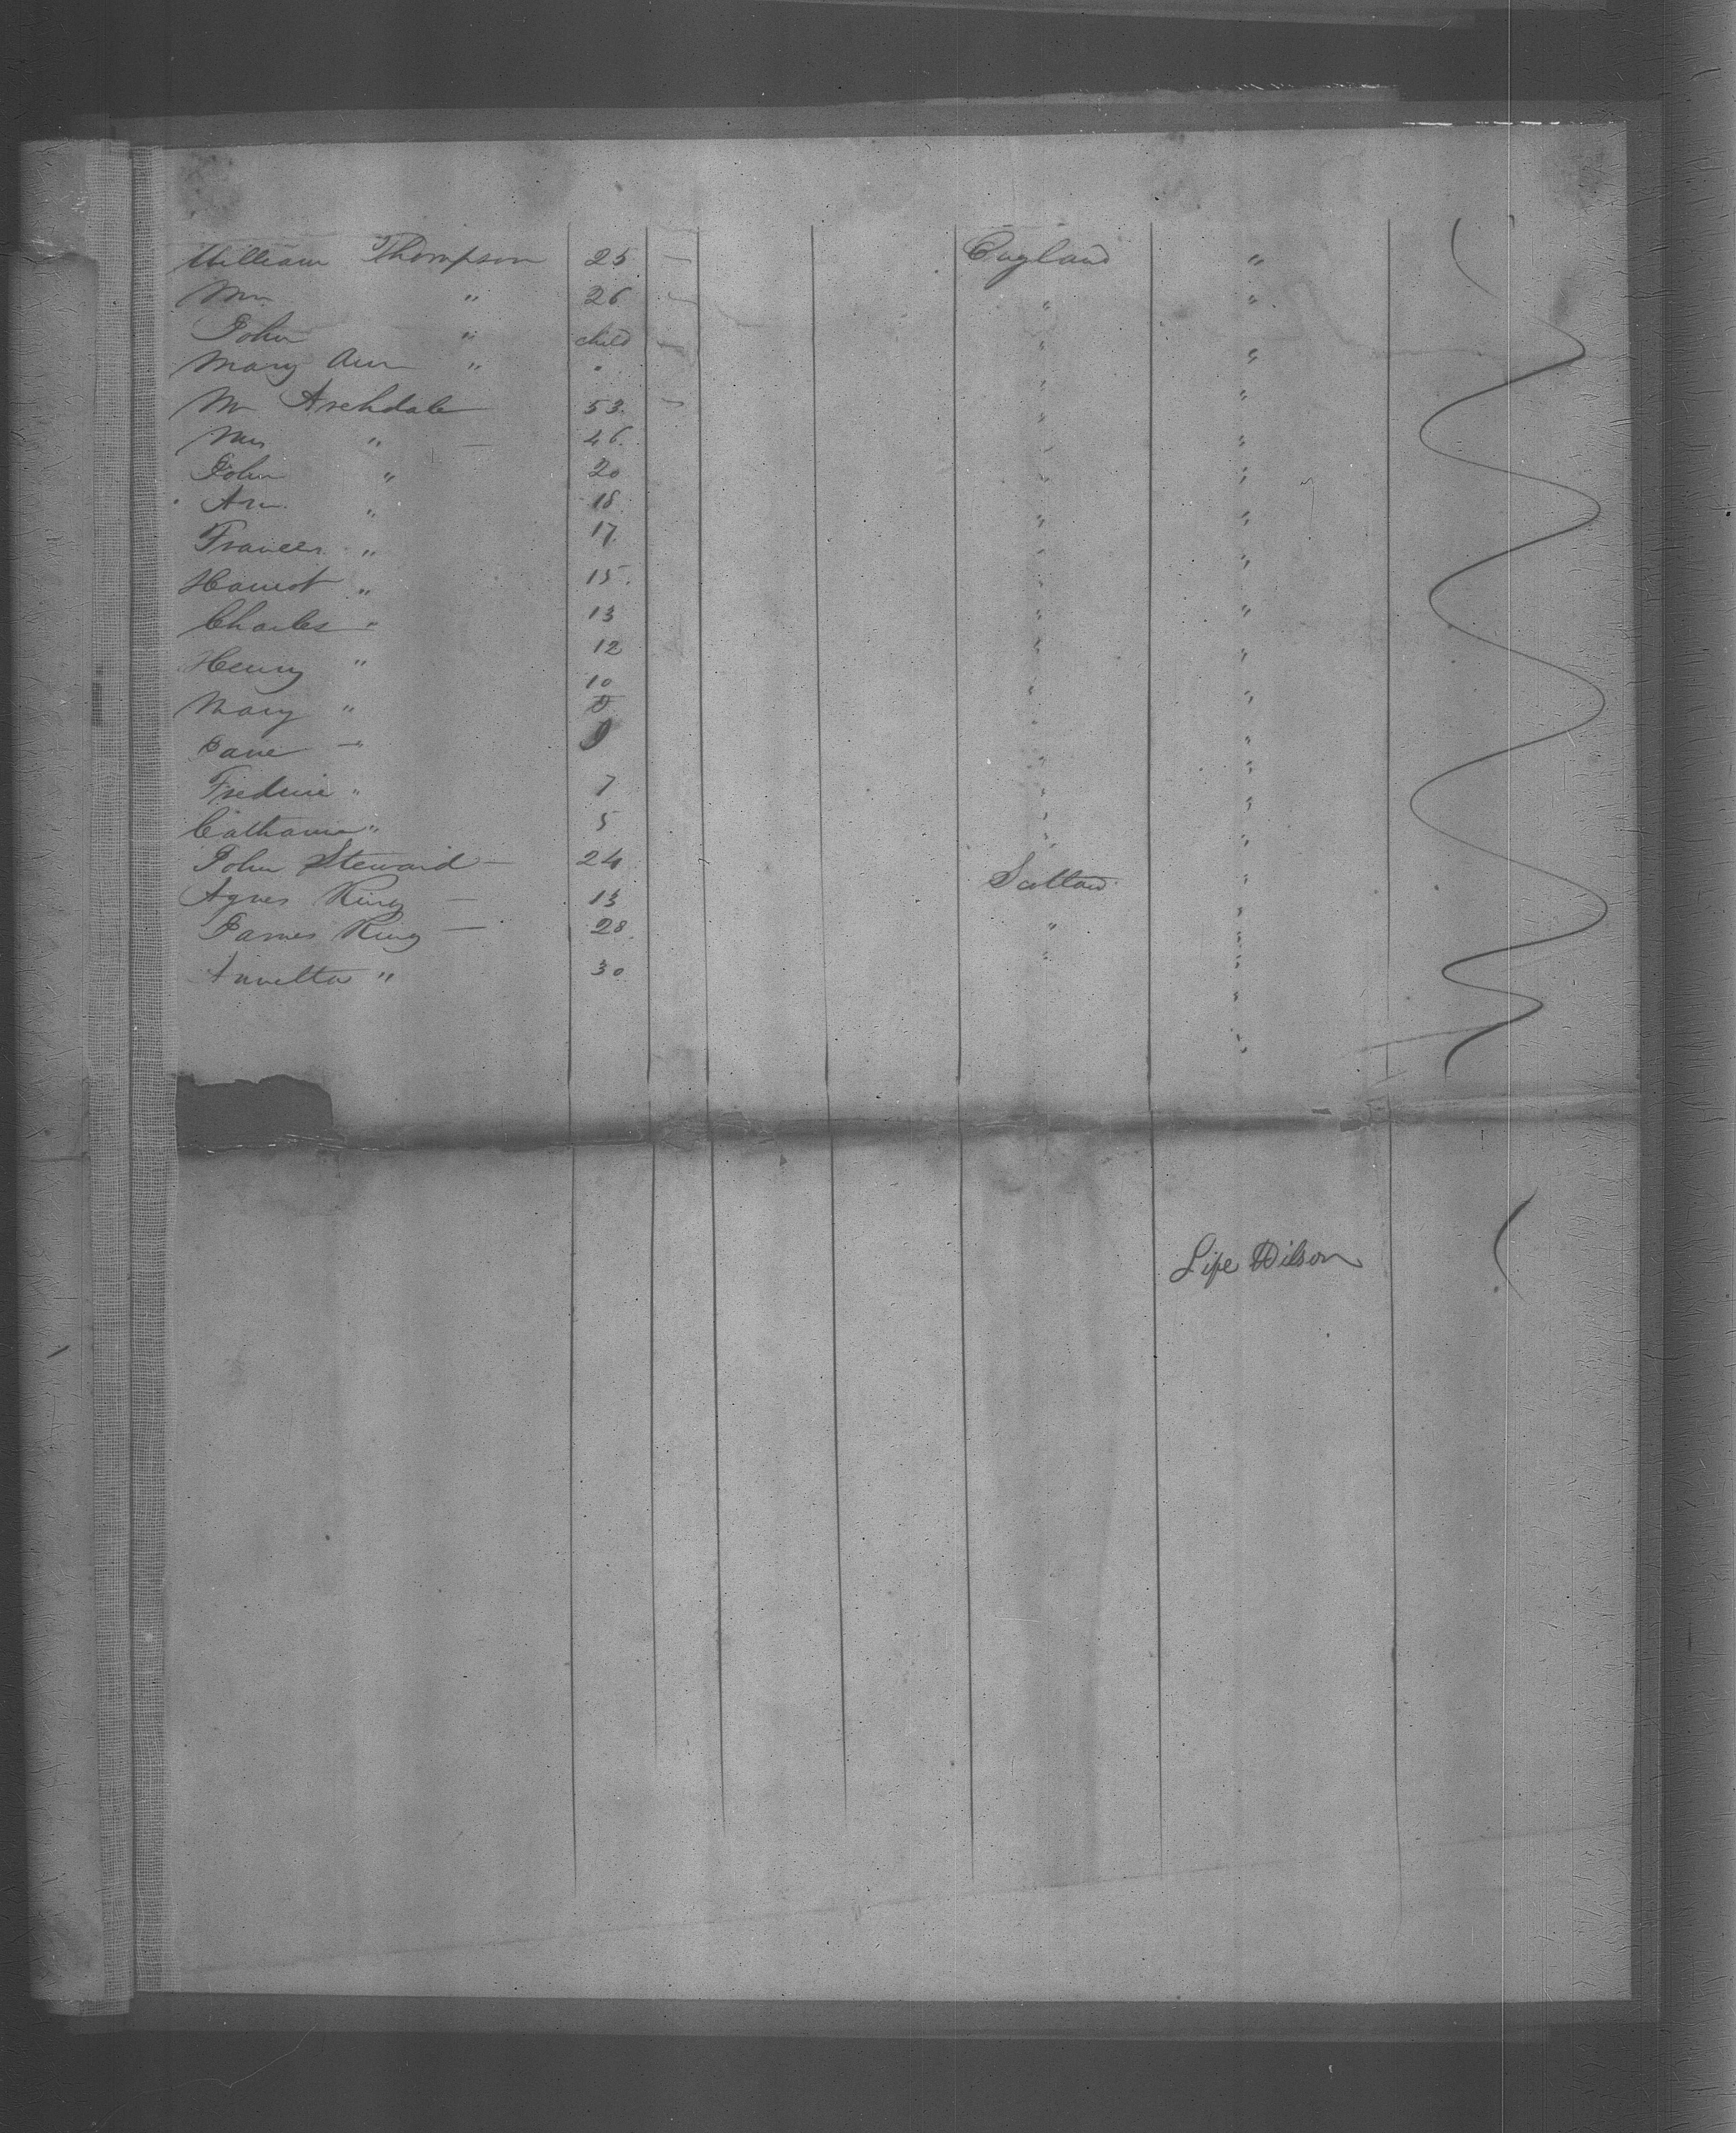 William Thompson 25 — England "
Mrs " 26 — " "
John " child — " "
Mary Ann " " " "
Mr Archdale 53 — " "
Mrs " — 46 " "
John " 20 " "
Ann " 18 " "
Frances " 17 " "
Harriot " 15 " "
Charles " 13 " "
Henry " 12 " "
Mary " 10 " "
Jane — " " "
" 7 " "
Catharine " 5 " "
John Steward — 24 Scotland "
Agnes King — 13 " "
James King — 28 " "
" 30 "
Wilson